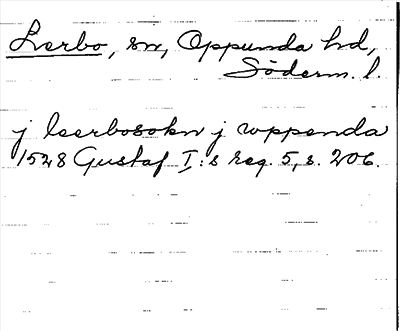 Lerbo, sn, Oppunda hd,
Söderm. l.
j leerbosokn j wppenda
1528 Gustaf I:s reg. 5, s. 206.